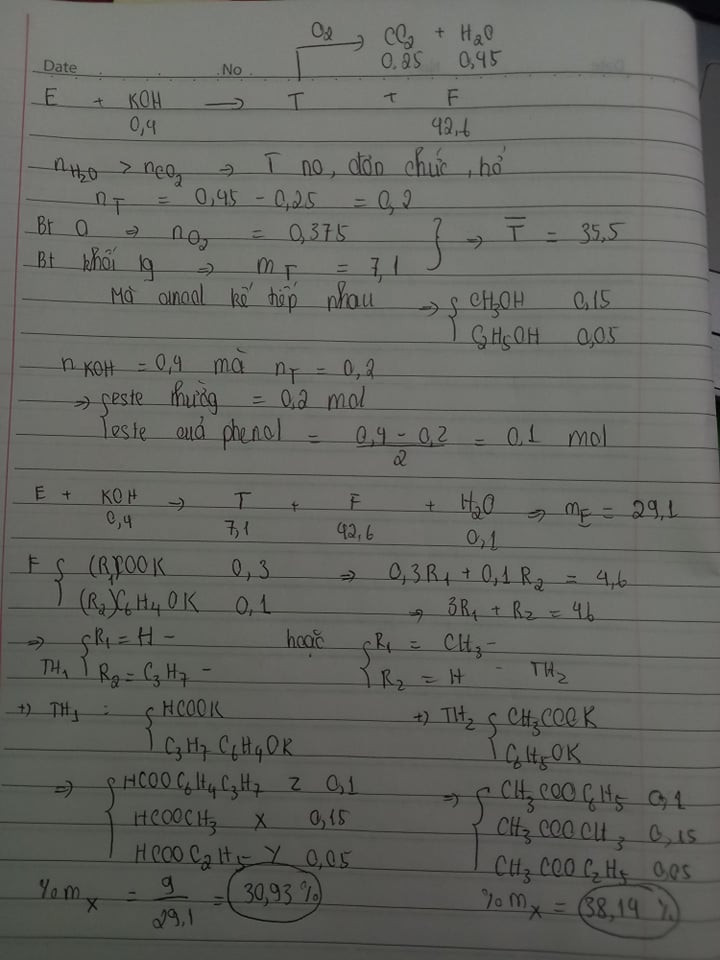 O2 → CO2 + H2O
0,25 0,45
Date No
E + KOH → T + F
0,4 42,6
nH2O > nCO2 ⇒ T no, đơn chức, hở
nT = 0,45 - 0,25 = 0,2
Bt O ⇒ nO2 = 0,375
Bt khối lg ⇒ mT = 7,1
} ⇒ T̅ = 35,5
Mà ancol kế tiếp nhau ⇒ { CH3OH 0,15
C2H5OH 0,05
nKOH = 0,4 mà nT = 0,2
⇒ { este thường = 0,2 mol
este của phenol = (0,4 - 0,2)/2 = 0,1 mol
E + KOH → T + F + H2O ⇒ mE = 29,1
0,4 7,1 42,6 0,1
F { (R1)COOK 0,3 ⇒ 0,3R1 + 0,1R2 = 4,6
(R2)C6H4OK 0,1 ⇒ 3R1 + R2 = 46
⇒ TH1 { R1 = H - hoặc { R1 = CH3 -
R2 = C3H7 - R2 = H - TH2
+) TH1 : { HCOOK +) TH2 { CH3COOK
C3H7C6H4OK C6H5OK
⇒ { HCOOC6H4C3H7 Z 0,1 ⇒ { CH3COOC6H5 0,1
HCOOCH3 X 0,15 CH3COOCH3 0,15
HCOOC2H5 Y 0,05 CH3COOC2H5 0,05
%mX = 9/29,1 = 30,93% %mX = 38,14%